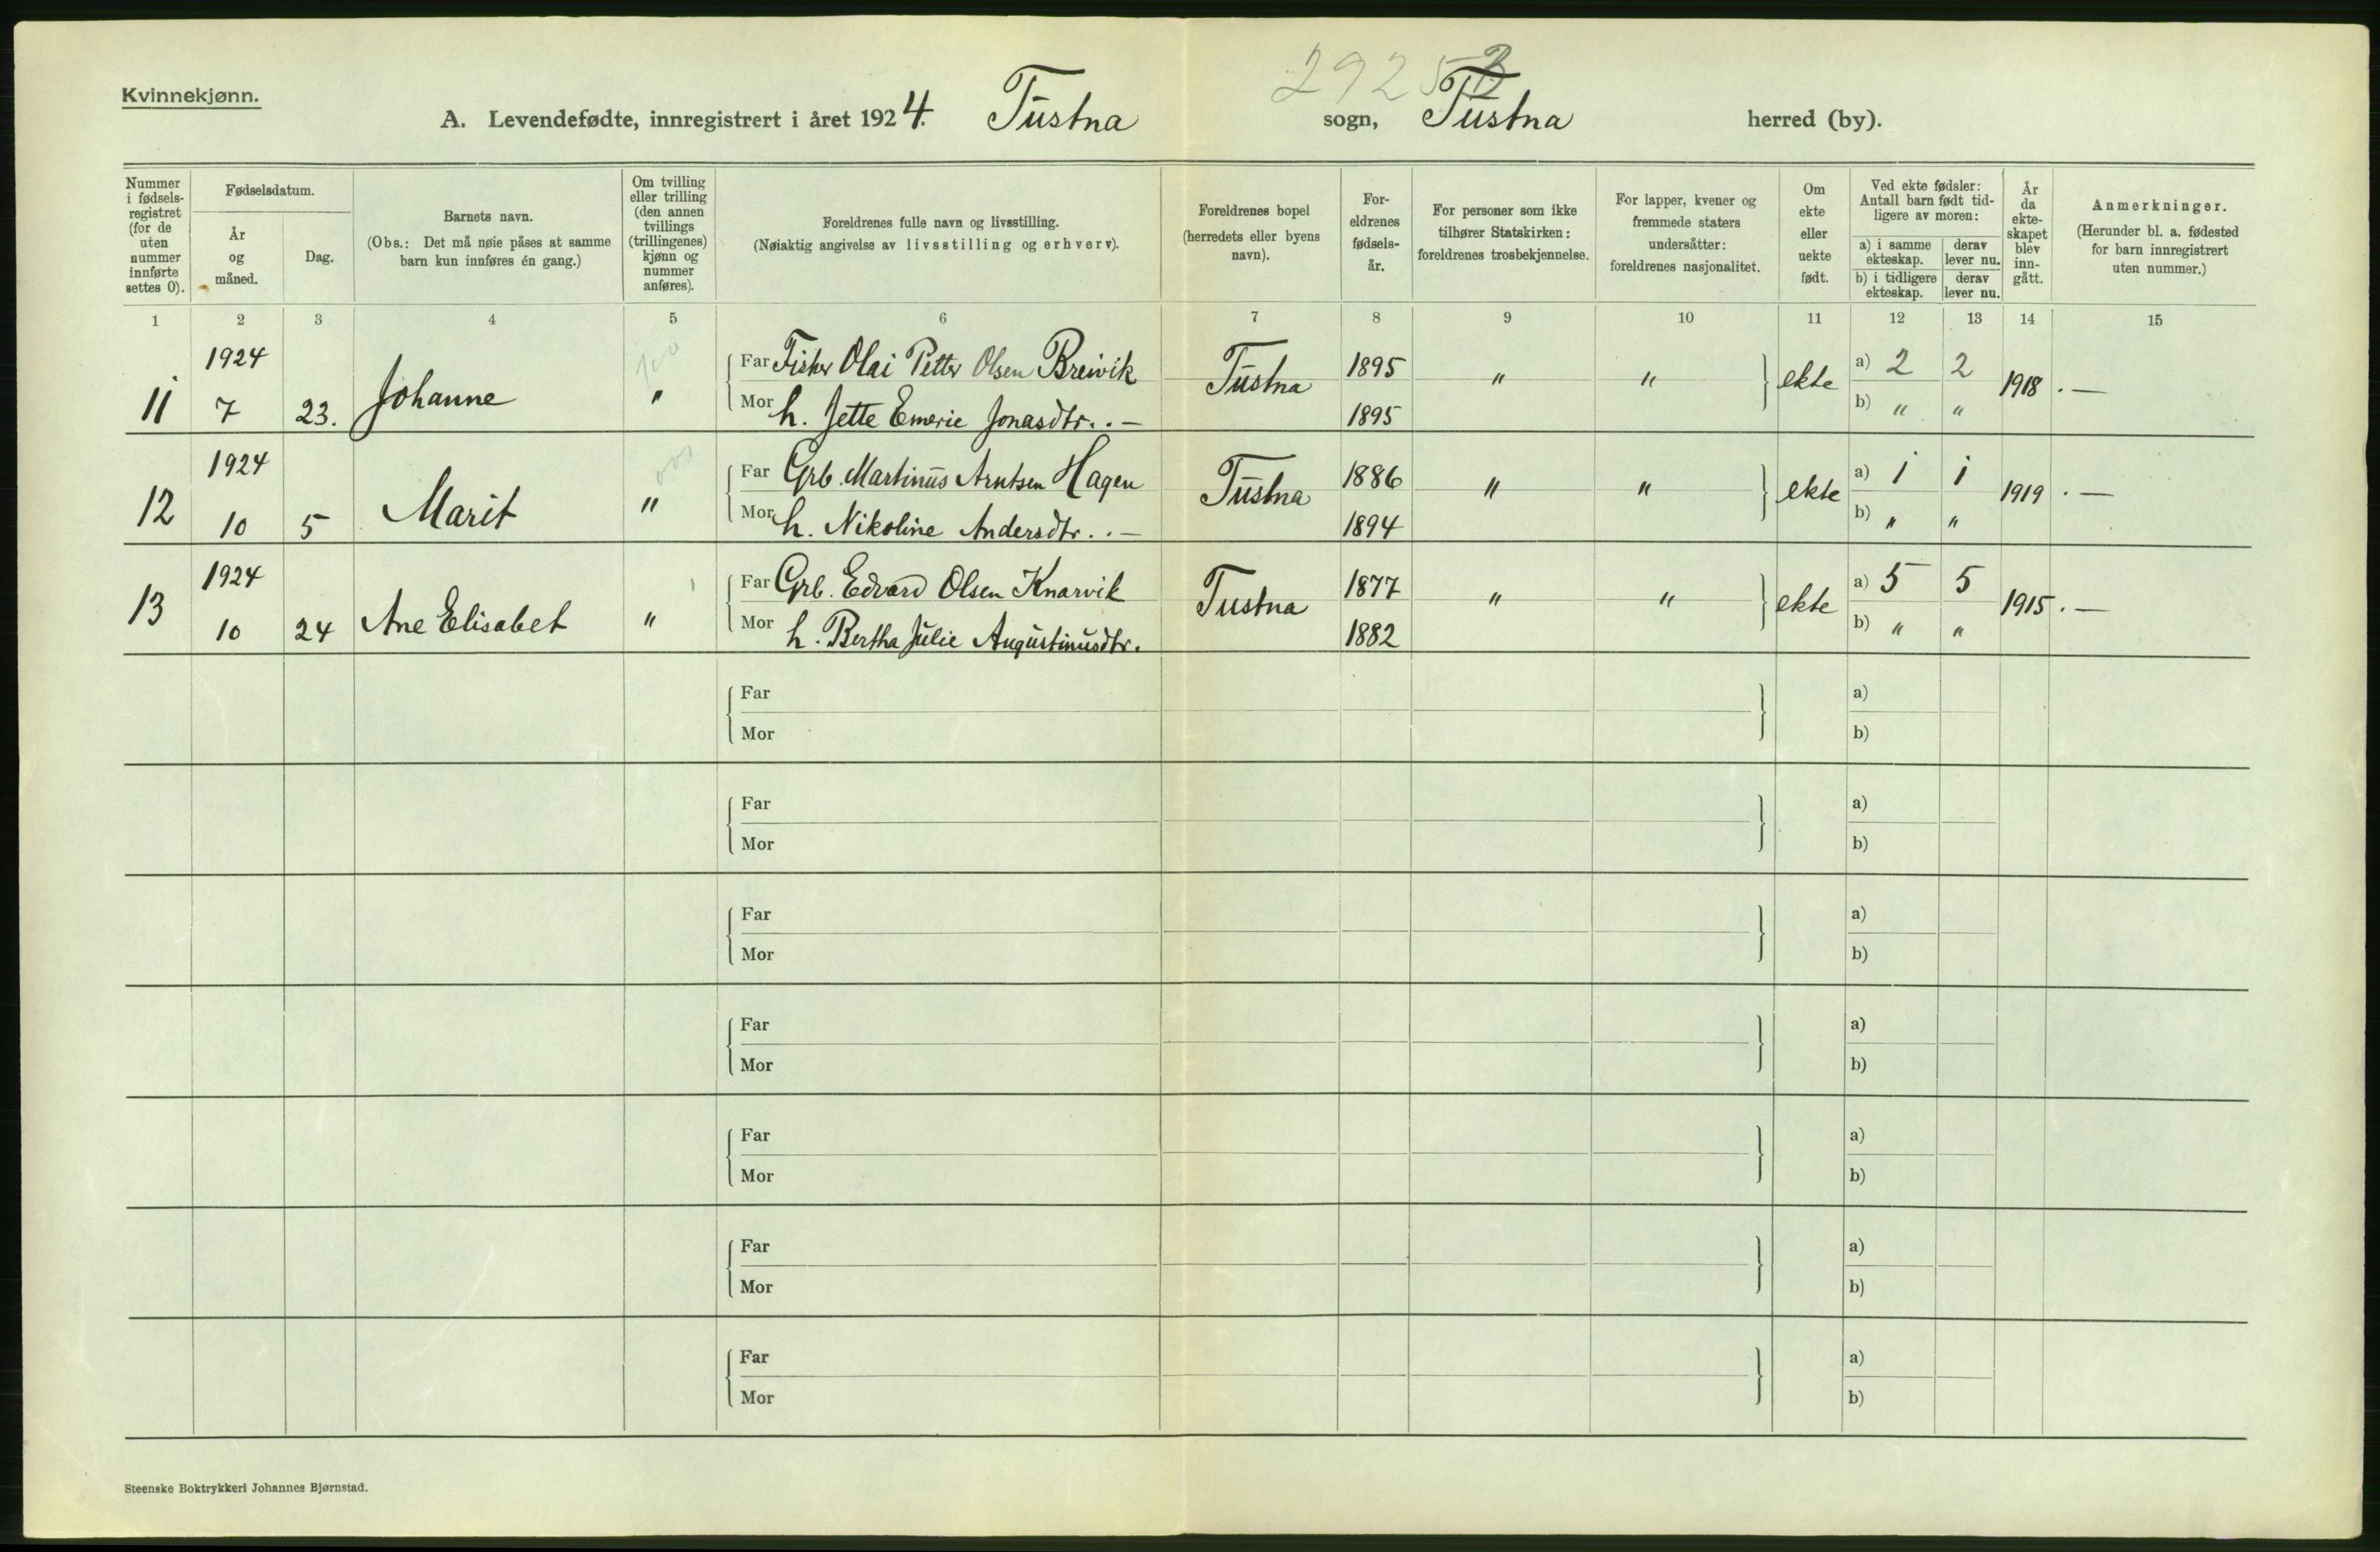 Kvinnekjønn.
A. Levendefødte, innregistrert i året 1924. Tustna sogn, Tustna herred (by).
Nummer i fødselsregistret (for de uten nummer innførte settes 0).
Fødselsdatum.
År og måned.
Dag.
Barnets navn.
(Obs.: Det må nøie påses at samme barn kun innføres én gang.)
Om tvilling eller trilling (den annen tvillings (trillingenes) kjønn og nummer anføres).
Foreldrenes fulle navn og livsstilling.
(Nøiaktig angivelse av livsstilling og erhverv).
Foreldrenes bopel (herredets eller byens navn).
Foreldrenes fødselsår.
For personer som ikke tilhører Statskirken: foreldrenes trosbekjennelse.
For lapper, kvener og fremmede staters undersåtter: foreldrenes nasjonalitet.
Om ekte eller uekte født.
Ved ekte fødsler: Antall barn født tidligere av moren:
a) i samme ekteskap.
derav lever nu.
b) i tidligere ekteskap.
derav lever nu.
År da ekteskapet blev inngått.
Anmerkninger.
(Herunder bl. a. fødested for barn innregistrert uten nummer.)
1 2 3 4 5 6 7 8 9 10 11 12 13 14 15
1924 Far Fisker Olai Petter Olsen Breivik 1895 a) 2 2
11 7 23. Johanne " Tustna " " ekte 1918 . —
Mor h. Jette Emerie Jonasdtr. . — 1895 b) " "
1924 Far Grb. Martinus Arntsen Hagen 1886 a) 1 1
12 10 5 Marit " Tustna " " ekte 1919 . —
Mor h. Nikoline Andersdtr. . — 1894 b) " "
1924 Far Grb. Edvard Olsen Knarvik 1877 a) 5 5
13 10 24 Ane Elisabet " Tustna " " ekte 1915 . —
Mor h. Bertha Julie Augustinusdtr. 1882 b) " "
Far a)
Mor b)
Far a)
Mor b)
Far a)
Mor b)
Far a)
Mor b)
Far a)
Mor b)
Far a)
Mor b)
Far a)
Mor b)
Steenske Boktrykkeri Johannes Bjørnstad.